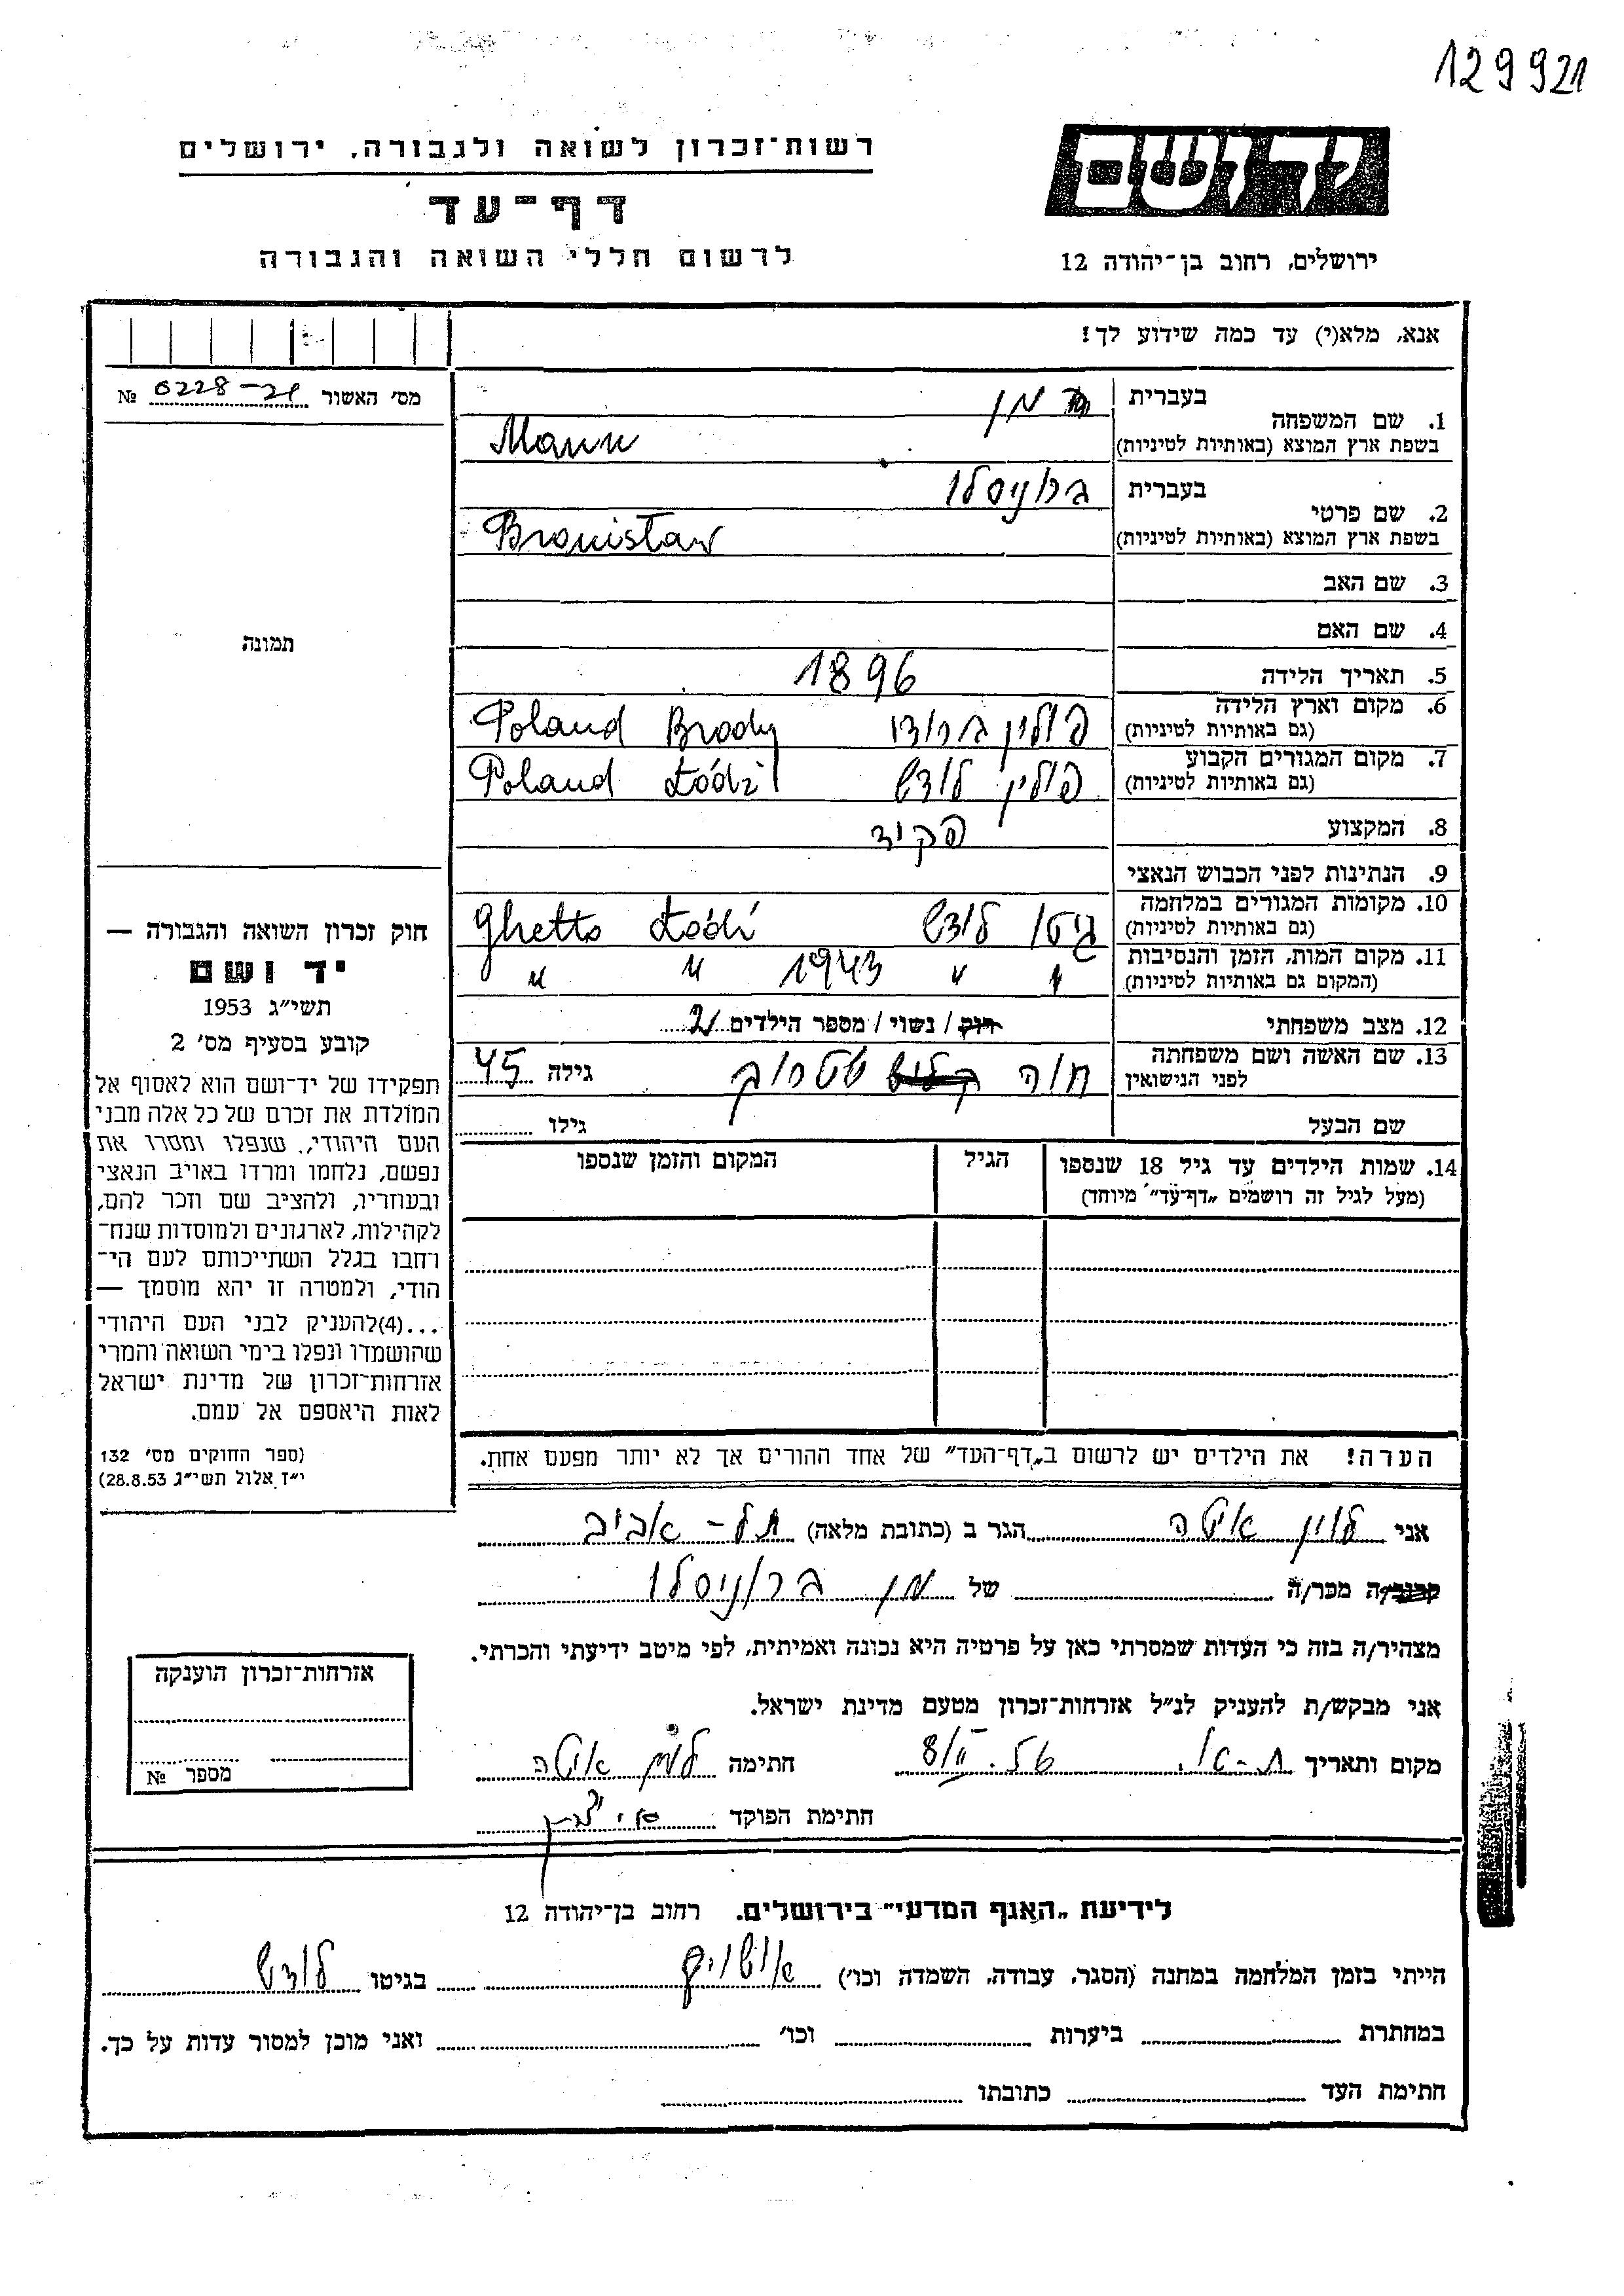 129921
רשות־זכרון לשואה ולגבורה, ירושלים
יד ושם
דף־עד
לרשום חללי השואה והגבורה
ירושלים, רחוב בן־יהודה 12
אנא, מלא(י) עד כמה שידוע לך!
מס' האשור № 0228-21
1. שם המשפחה בעברית מן
בשפת ארץ המוצא (באותיות לטיניות) Mann
2. שם פרטי בעברית ברוניסלו
בשפת ארץ המוצא (באותיות לטיניות) Bronisław
3. שם האב
4. שם האם
תמונה
5. תאריך הלידה 1896
6. מקום וארץ הלידה (גם באותיות לטיניות) פולין ברודי Poland Brody
7. מקום המגורים הקבוע (גם באותיות לטיניות) פולין לודש Poland Łódź
8. המקצוע פקיד
9. הנתינות לפני הכבוש הנאצי
10. מקומות המגורים במלחמה (גם באותיות לטיניות) גיטו לודש Ghetto Łódź
11. מקום המות, הזמן והנסיבות (המקום גם באותיות לטיניות) " " 1943 " "
12. מצב משפחתי רווק / נשוי / מספר הילדים 2
13. שם האשה ושם משפחתה לפני הנישואין חוה גילה 45
שם הבעל גילו
14. שמות הילדים עד גיל 18 שנספו הגיל המקום והזמן שנספו
(מעל לגיל זה רושמים „דף־עד" מיוחד)
חוק זכרון השואה והגבורה —
יד ושם
תשי"ג 1953
קובע בסעיף מס' 2
תפקידו של יד־ושם הוא לאסוף אל
המולדת את זכרם של כל אלה מבני
העם היהודי, שנפלו ומסרו את
נפשם, נלחמו ומרדו באויב הנאצי
ובעוזריו, ולהציב שם וזכר להם,
לקהילות, לארגונים ולמוסדות שנח־
רחבו בגלל השתייכותם לעם הי־
הודי, ולמטרה זו יהא מוסמך —
...(4)להעניק לבני העם היהודי
שהושמדו ונפלו בימי השואה והמרי
אזרחות־זכרון של מדינת ישראל
לאות היאספם אל עמם.
(ספר החוקים מס' 132
י"ד אלול תשי"ג 28.8.53)
הערה! את הילדים יש לרשום ב„דף־העד" של אחד ההורים אך לא יותר מפעם אחת.
אני לוין הגר ב (כתובת מלאה) תל-אביב
קרוב/ה מכר/ה של מן ברוניסלו
מצהיר/ה בזה כי העדות שמסרתי כאן על פרטיה היא נכונה ואמיתית, לפי מיטב ידיעתי והכרתי.
אני מבקש/ת להעניק לנ"ל אזרחות־זכרון מטעם מדינת ישראל.
מקום ותאריך חתימה
חתימת הפוקד
אזרחות־זכרון הוענקה
מספר №
לידיעת „האגף המדעי" בירושלים. רחוב בן־יהודה 12
הייתי בזמן המלחמה במחנה (הסגר, עבודה, השמדה וכו') אושויץ בגיטו לודש
במחתרת ביערות וכו' ואני מוכן למסור עדות על כך.
חתימת העד כתובתו